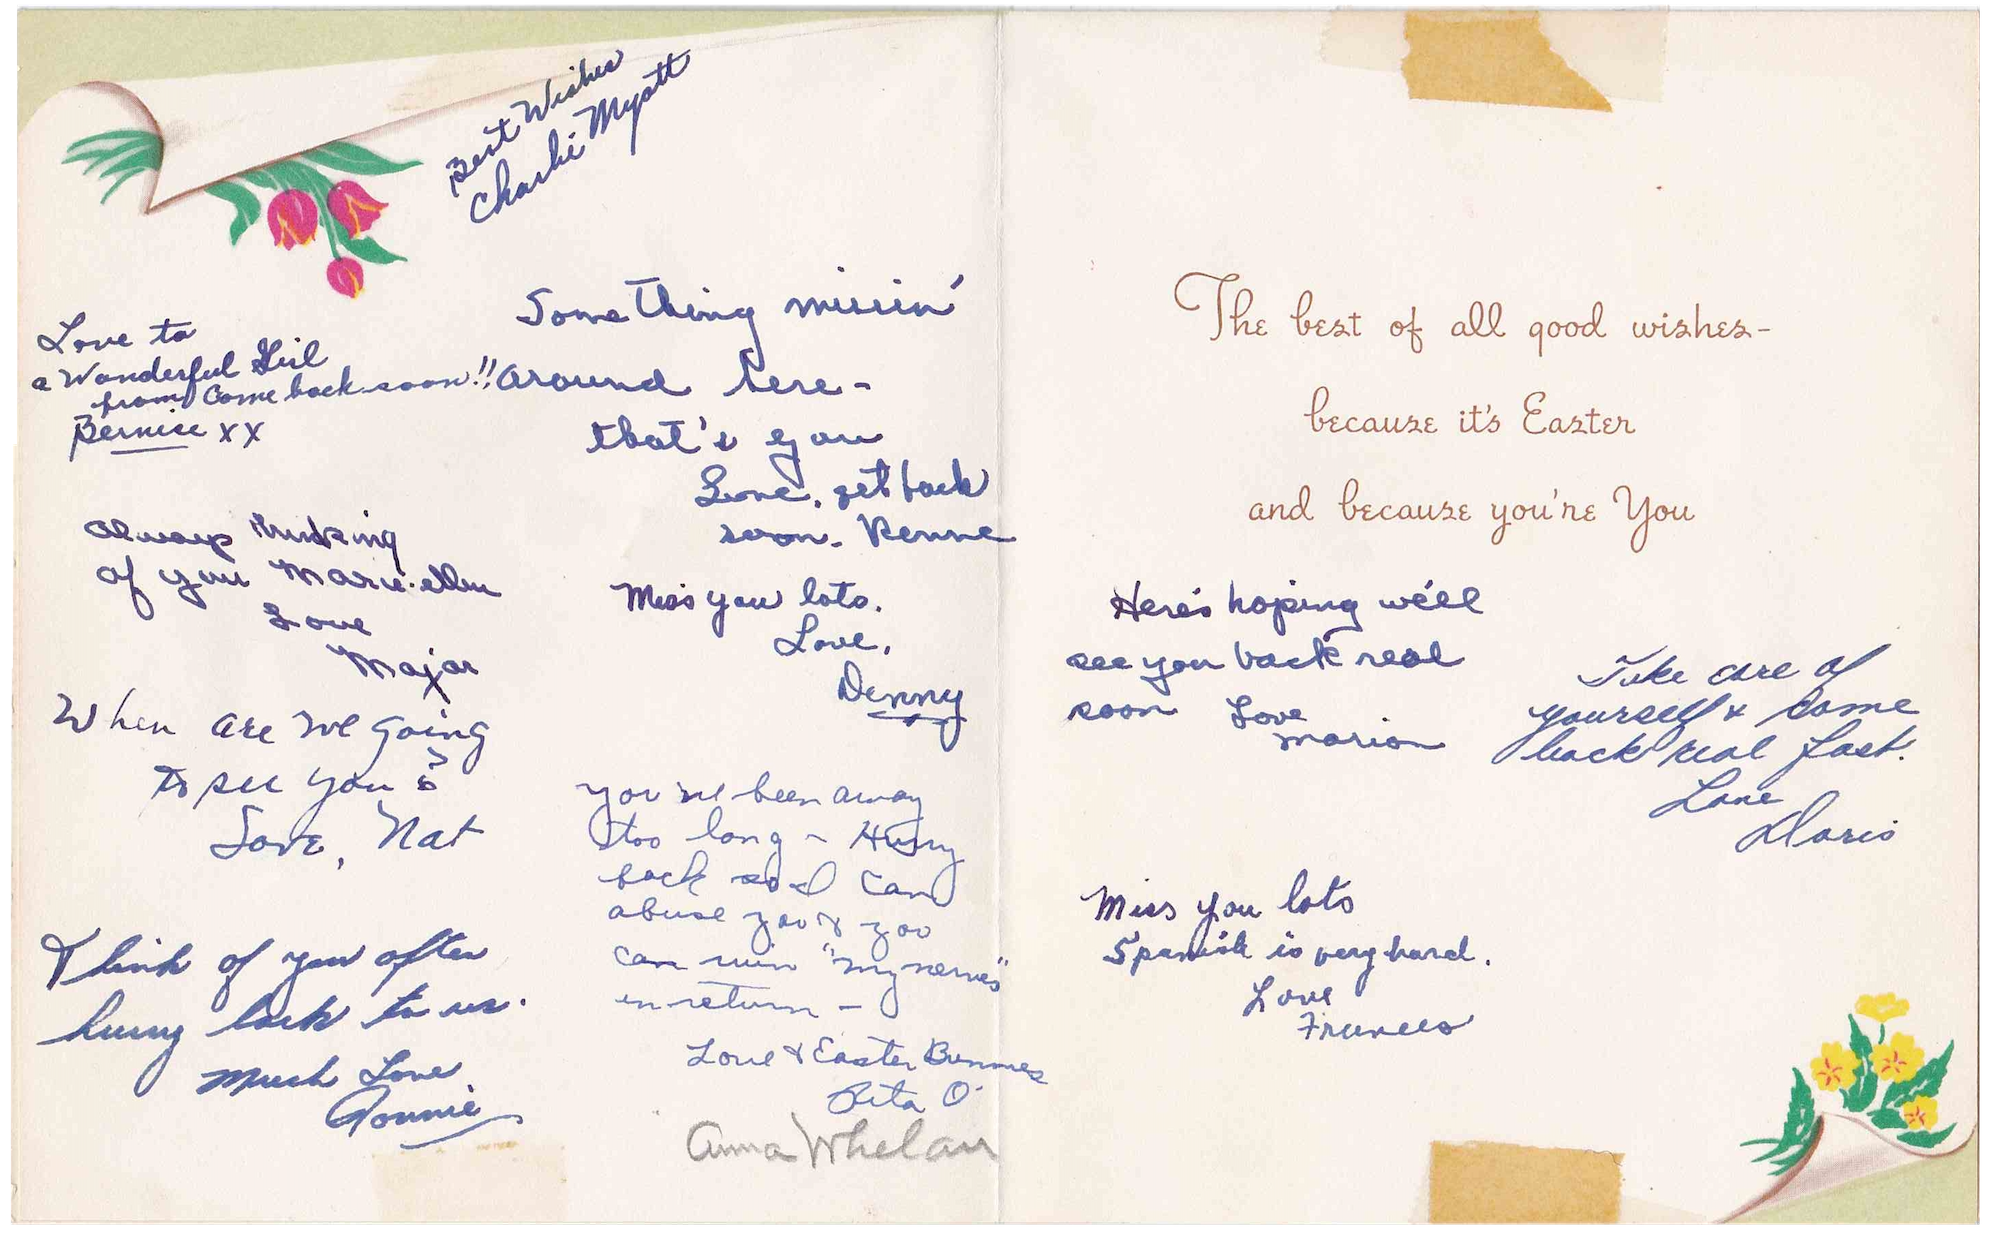 Best Wishes
Charlie Myatt
Love to
a Wonderful Girl
from Come back soon!!
Bernice xx
Something missin'
around here -
that's you
Love, get back
soon.
Always thinking
of you Marie-ellen
Love
Major
Miss you lots.
Love,
Denny
When are we going
to see you?
Love, Nat
you've been away
too long - Hurry
back so I can
abuse you & you
can ruin "my nerves"
in return -
Love & Easter Bunnies
Rita O'
Think of you often
hurry back to us.
Much Love
Anna Whelan
The best of all good wishes-
because it's Easter
and because you're You
Here's hoping we'll
see you back real
soon Love
Marion
Take care of
yourself & come
back real fast.
Love
Doris
Miss you lots
Spanish is very hard.
Love
Frances